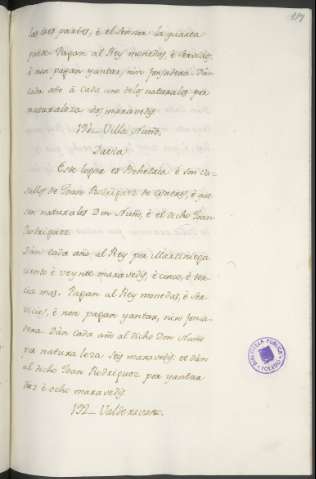 las tres partes, è el Señor la quarta
parte. Pagan al Rey monedas, è servicio,
è non pagan yantar, nin fonsadera. Dan
cada año à cada uno delos naturales por
naturaleza dos maravedis
191_ Villa Nuño.
Davia
Este logar es Behetria è son va-
sallos de Joan Rodriguez de è que
son naturales Don Nuño, è el dicho Joan
Rodriguez
Dan cada año al Rey por Martiniega
ciento è veynte maravedis, è cinco, è ter-
cia mas. Pagan al Rey monedas, è ser-
vicios, è non pagan yantar, nin fonsa-
dera. Dan cada año al dicho Don Nuño
por natura leza Seis maravedis. et dan
al dicho Joan Rodriguez por yantar
è ocho maravedis
192_
BIBLIOTECA PUBLICA
TOLEDO